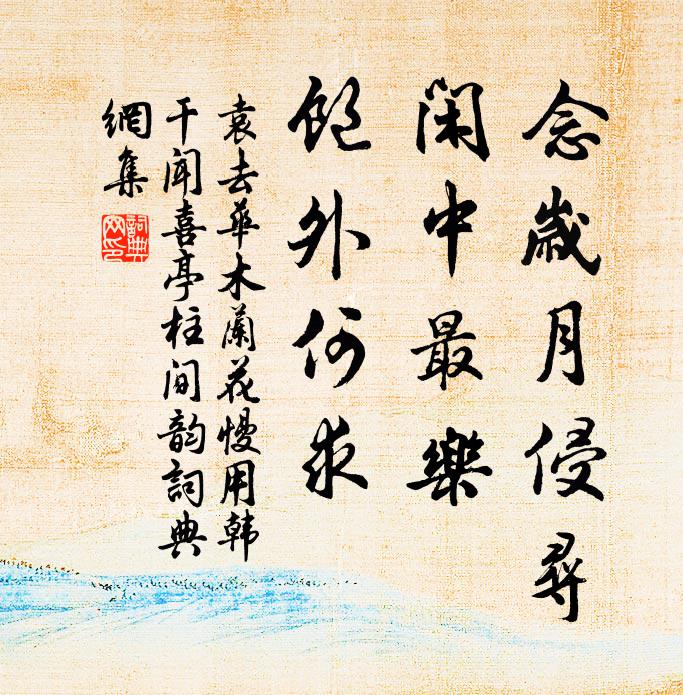 念歲月侵尋
閑中最樂
飽外何求
袁去華木蘭花慢用韓
干聞喜亭柱间韵詞典
網集
詞典
网印